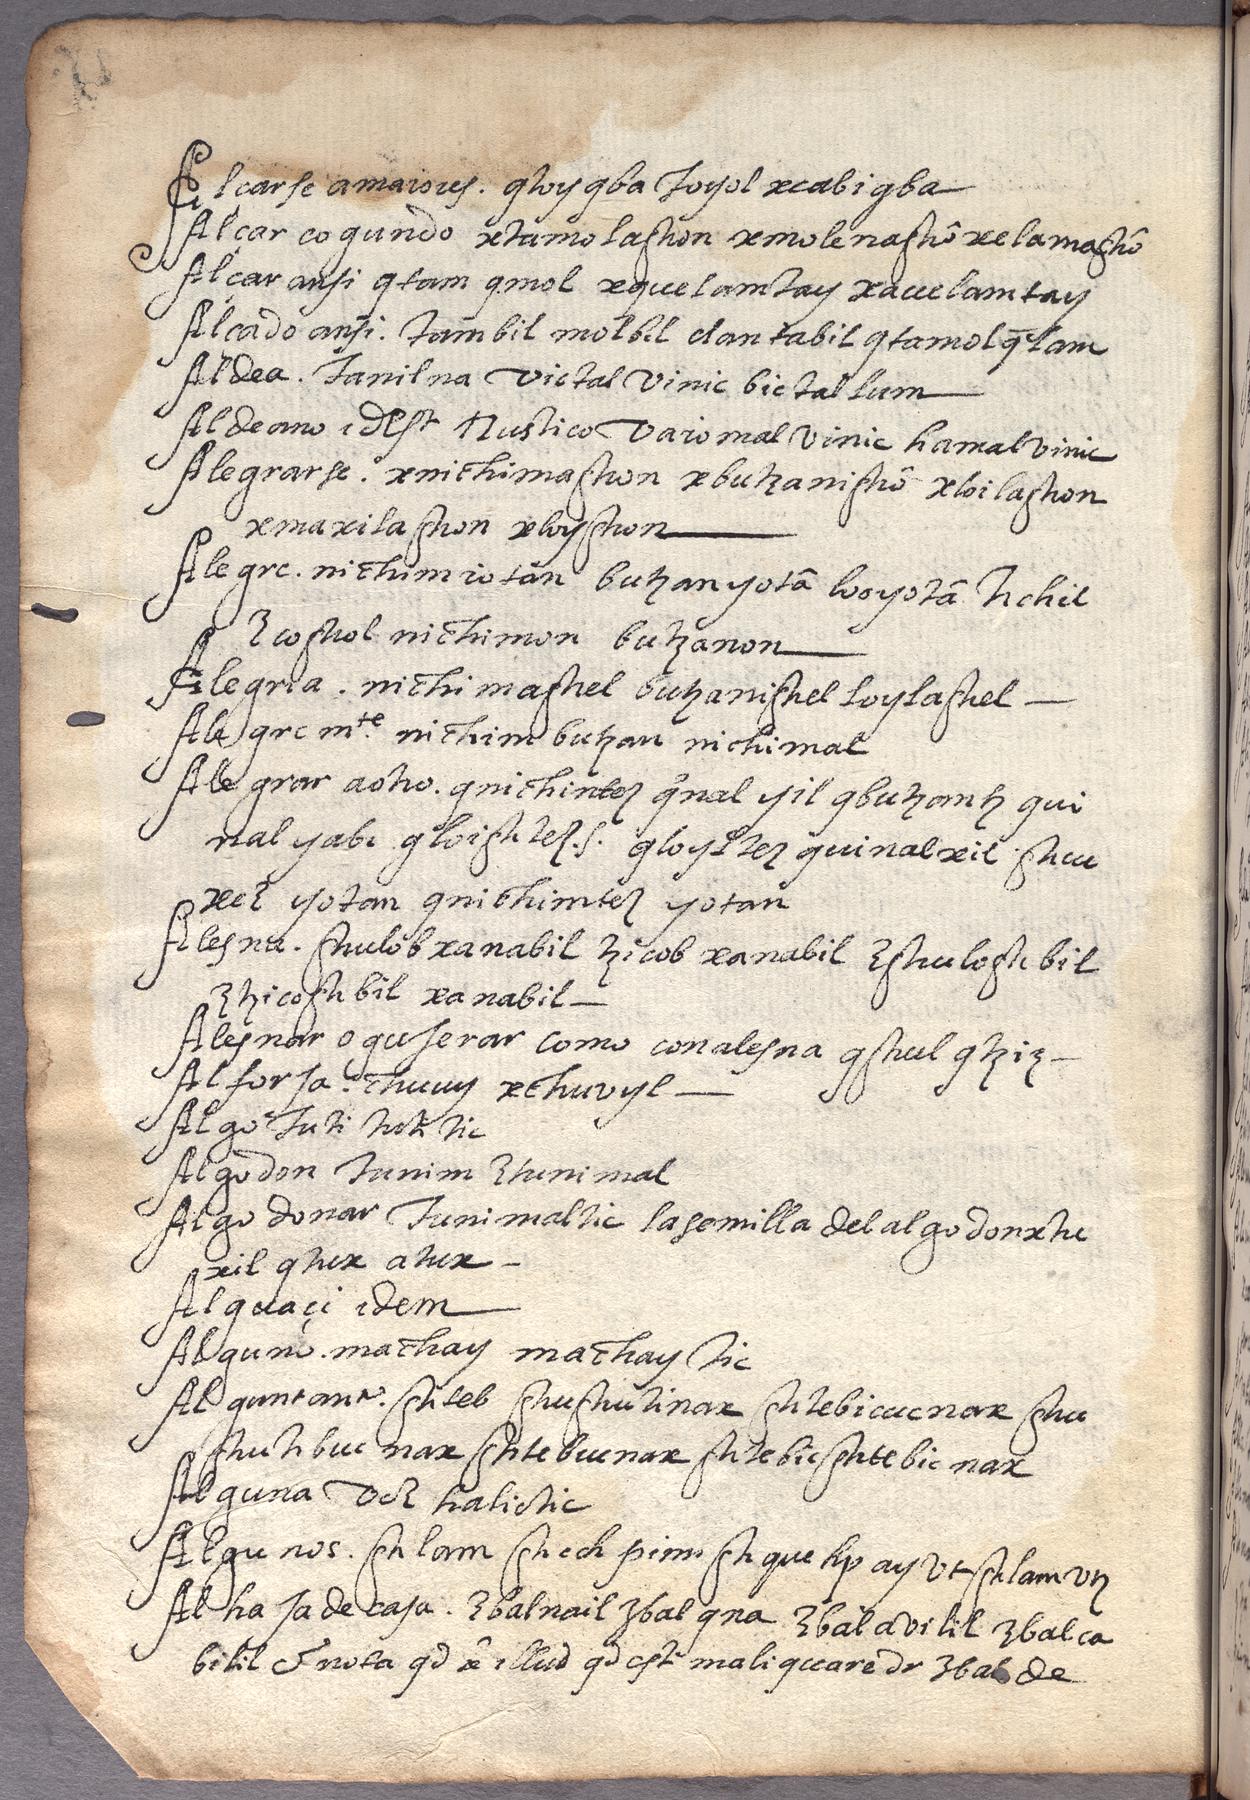 Alcarse amaiores. qtoy qba toyol xcabi qba
Alçar cogiendo xtamolaghon xmolenaghō xelamaghō
Alçar ansi qtam qmol xquelamtay xauelamtay
Alcado ansi. tambil molbil elantabil qtamol q̄lam
Aldea. Tanilna victal vinic bictal lum
Aldeano idest Rustico vaiomal vinic hamal vinic
Alegrarse. xnichimaghon xbutzanighō xloilaghon
xmaxilaghon xloyghon
Alegre. nichimiotan butzanyotā losyotā tichil
Ecoghol nichimon butzanon
Alegria. nichimaghel butzanighel loylaghel
Alegre mte. nichim butzan nichimal
Alegrar aotro. qnichintez q̄nal yil qbutzantz qui
nal yabi qloightez .s. qloyghtez quinalxil ghuu
xee yotan qnichimtez yotan
Alesna. ghulob xanabil tzicob xanabil Eghuloghbil
Etzicoghbil xanabil
Alesnar o guserar como conalesna qghul qtziz
Alforja. chuuy xchuvyl
Algo tuti tuti tic
Algodon tunim Etunimal
Algodonar tunimaltic lasemilla del algodon xtu
xil qtux atux
Alguaçi idem
Alguno. machay machay tic
Alguntanto. ghteb ghughutinax ghtebicucnax ghu
ghutibuc nax ghtebucnax ghtebic ghtebic nax
Alguna vez halictic
Algunos. ghlam ghech pim ghque hp ay vt ghlam vtz
Alhaja de casa. Ebalnail Ebal qna Ebal avilil Ebal ca
bilil & nota qd illud qd est maliquare dr Ebal de